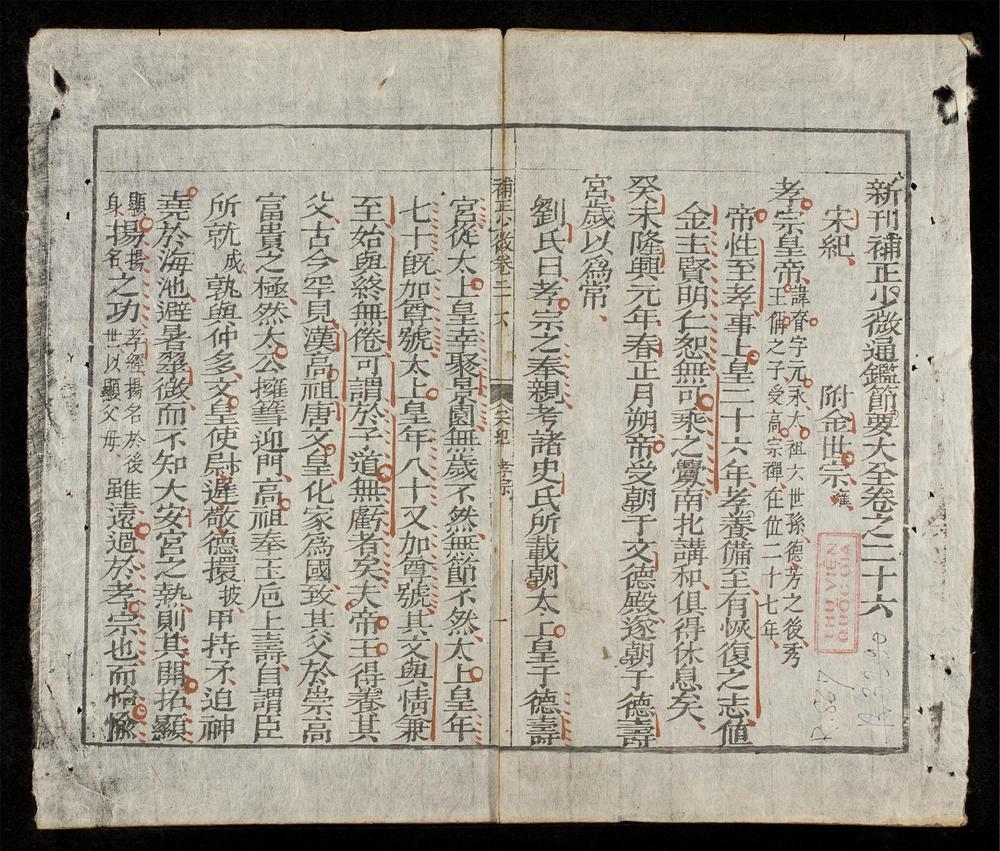 新刊補正少微通鑑節要大全卷之二十六
宋紀　附金世宗雍
孝宗皇帝諱眘字元永太祖六世孫德芳之後秀王偁之子受高宗禪在位二十七年
帝性至孝事上皇二十六年孝養備至有恢復之志値
金主賢明仁恕無可乘之釁南北講和俱得休息矣
癸未隆興元年春正月朔帝受朝于文德殿遂朝于德壽
宮歲以爲常
劉氏曰孝宗之奉親考諸史氏所載朝太上皇于德壽
補正少微卷二十六　宋紀　孝宗　一
宮從太上皇幸聚景園無歲不然無節不然太上皇年
七十旣加尊號太上皇年八十又加尊號其文與情兼
至始與終無倦可謂於子道無虧者矣夫帝王得養其
父古今罕見漢高祖唐文皇化家爲國致其父於崇高
富貴之極然太公擁篲迎門高祖奉玉卮上壽自謂臣
所就成孰與仲多文皇使尉遲敬德擐披甲持矛迫神
堯於海池避暑翠微而不知大安宮之熱則其開拓顯
顯揚揚身名之功孝經揚名於後世以顯父母雖遠過於孝宗也而怡愉
THƯ VIỆN
QUỐC GIA
R.887